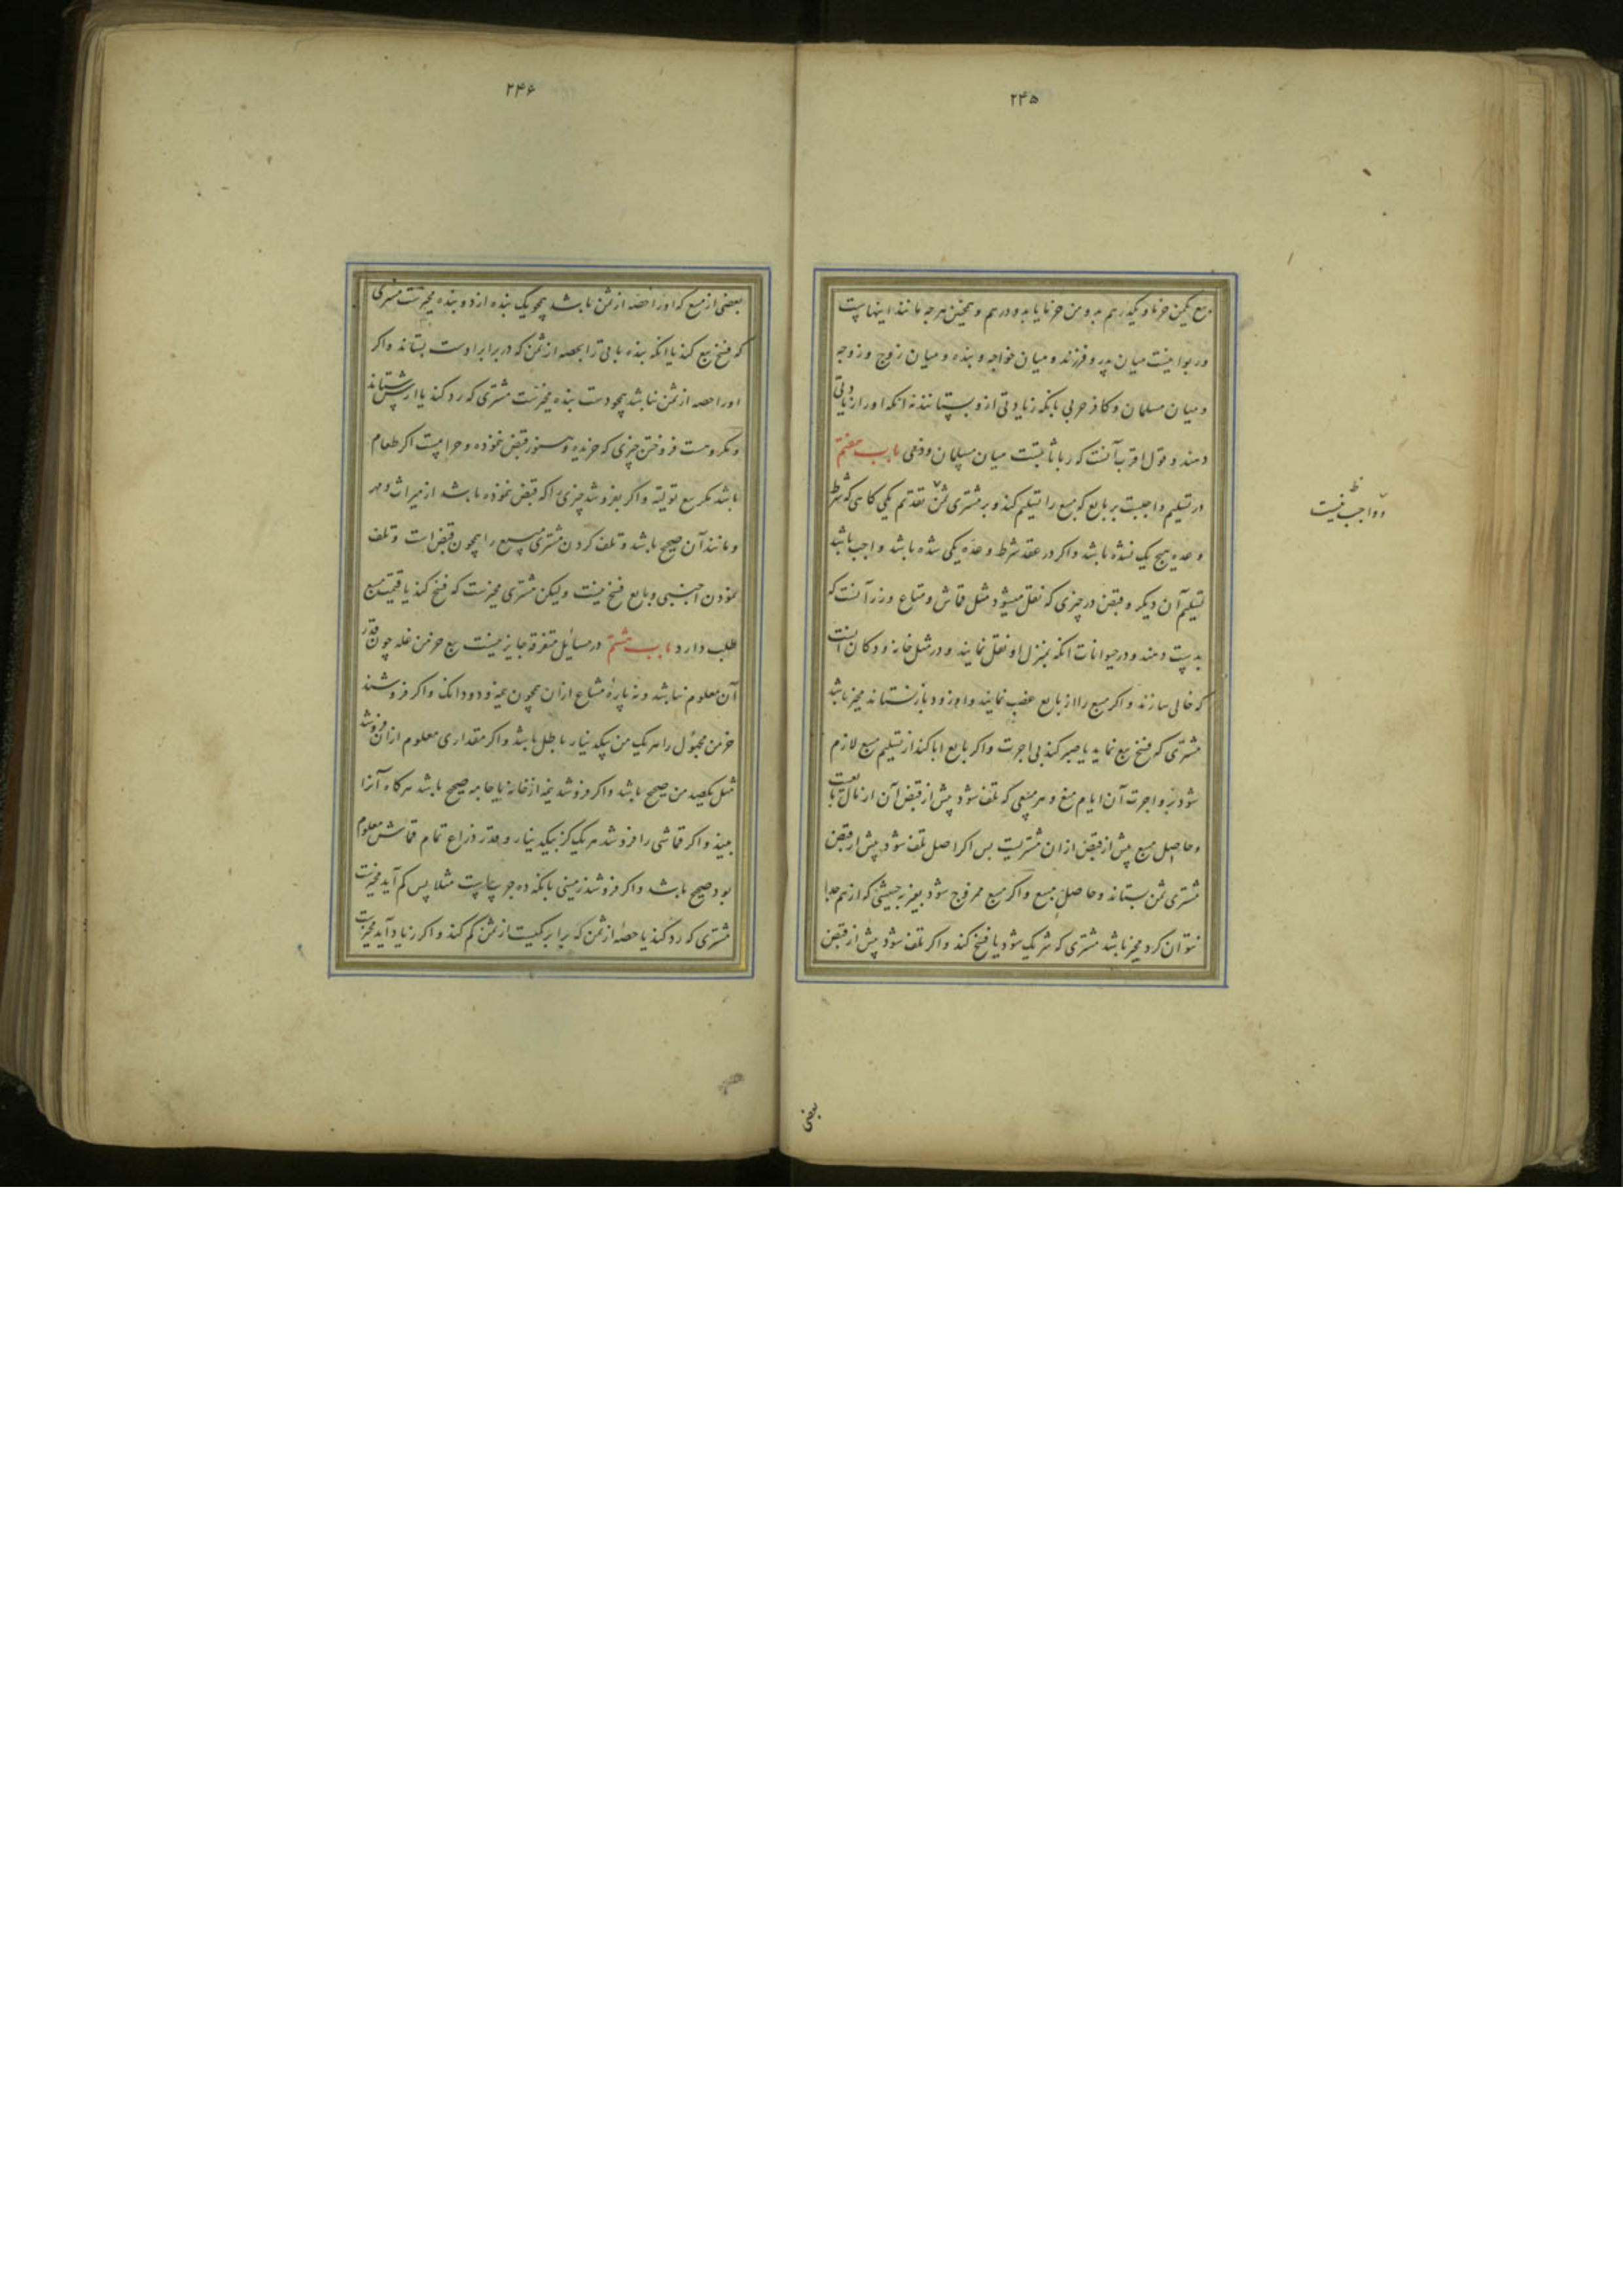 ۲۴۵
بیع یکمن خرما و یکدرهم بدو من خرما یا بدو درهم و همچنین هرچه مانند اینهاست
و ربوا نیست میان پدر و فرزند و میان خواجه و بنده و میان زوج و زوجه
و میان مسلمان و کافر حربی بانکه زیادتی ازو بستانند نه انکه او را زیادتی
دهند و قول اقرب آنست که ربا ثابتست میان مسلمان و ذمی باب هفتم
در تسلیم واجبست بر بایع که مبیع را تسلیم کند و بر مشتری ثمن تقدیم یکی کاهی که شرط
وعده هیچ یک نشده باشد و اکر در عقد شرط وعده یکی شده باشد واجب باشد
تسلیم آن دیکر و قبض در چیزی که نقل میشود مثل قماش و متاع و زر آنست که
بدست دهند و در حیوانات انکه بمنزل او نقل نمایند و در مثل خانه و دکان انست
که خالی سازند و اکر مبیع را از بایع غصب نمایند و او زود باز نستاند مخیر باشد
مشتری که فسخ بیع نماید یا صبر کند بی اجرت و اکر بایع ابا کند از تسلیم مبیع لازم
شود برو اجرت آن ایام منع و هر مبیعی که تلف شود پیش از قبض آن از مال بایعست
و حاصل مبیع پیش از قبض ازان مشتریست پس اکر اصل تلف شود پیش از قبض
مشتری ثمن بستاند و حاصل مبیع و اکر مبیع ممزوج شود بغیر به حیثیتی که از هم جدا
نتوان کرد مخیر باشد مشتری که شریک شود یا فسخ کند و اکر تلف شود پیش از قبض
واجب نیست
بعضی
۲۴۶
بعضی از مبیع که او را حصه از ثمن باشد همچو یک بنده از دو بنده مخیرست مشتری
که فسخ بیع کند یا انکه بنده باقی را بحصه از ثمن که در برابر اوست بستاند و اکر
او را حصه از ثمن نباشد همچو دست بنده مخیرست مشتری که رد کند یا ارش بستاند
و مکروهست فروختن چیزی که خریده و هنوز قبض ننموده و حرامست اکر طعام
باشد مکر بیع تولیه و اکر بفروشد چیزی را که قبض ننموده باشد از میراث و مهر
و مانند آن صحیح باشد و تلف کردن مشتری مبیع را همچون قبض است و تلف
نمودن اجنبی و بایع فسخ نیست ولیکن مشتری مخیرست که فسخ کند یا قیمت مبیع
طلب دارد باب هشتم در مسایل متفرقه جایز نیست بیع خرمن غله چون قدر
آن معلوم نباشد و نه پاره مشاع ازان همچون نیمه و دو دانک و اکر فروشند
خرمن مجهول را هر یک من بیکدینار باطل باشد و اکر مقداری معلوم ازان فروشد
مثل یکصد من صحیح باشد و اکر فروشد نیمه از خانه یا جامه صحیح باشد هرکاه آنرا
ببیند و اکر قماشی را فروشد هر یک کز بیکدینار و قدر ذراع تمام قماش معلوم
بود صحیح باشد و اکر فروشد زمینی بانکه ده جریبست مثلا پس کم آید مخیرست
مشتری که رد کند یا حصه از ثمن که برابر کمیست از ثمن کم کند و اکر زیاد آید مخیرست